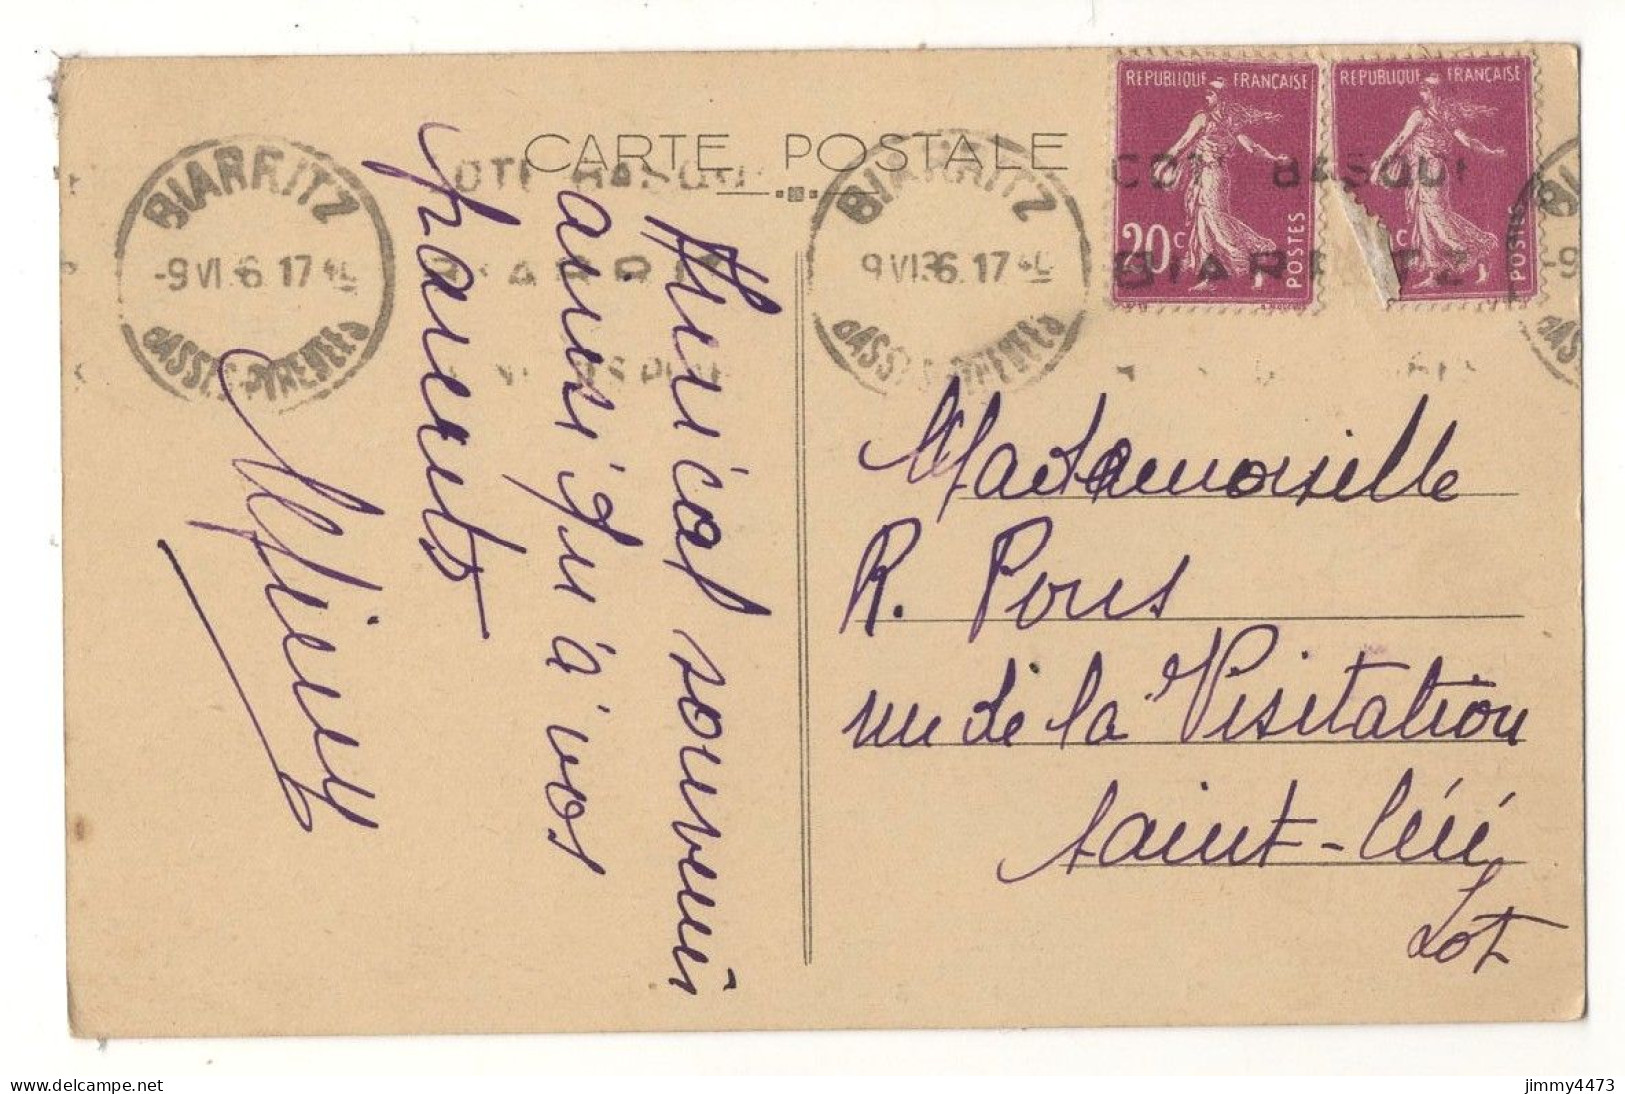 CARTE POSTALE
REPUBLIQUE FRANÇAISE
20c
POSTES
REPUBLIQUE FRANÇAISE
c
POSTES
BIARRITZ
-9 VI 36. 17
BASSES-PYRENEES
BIARRITZ
9 VI 36. 17
BASSES-PYRENEES
COTE BASQUE
BIARRITZ
Amical souvenir
ainsi qu'à vos
parents
Mademoiselle
R. Pons
rue de la Visitation
Saint-Céré
Lot
delcampe.net
jimmy4473